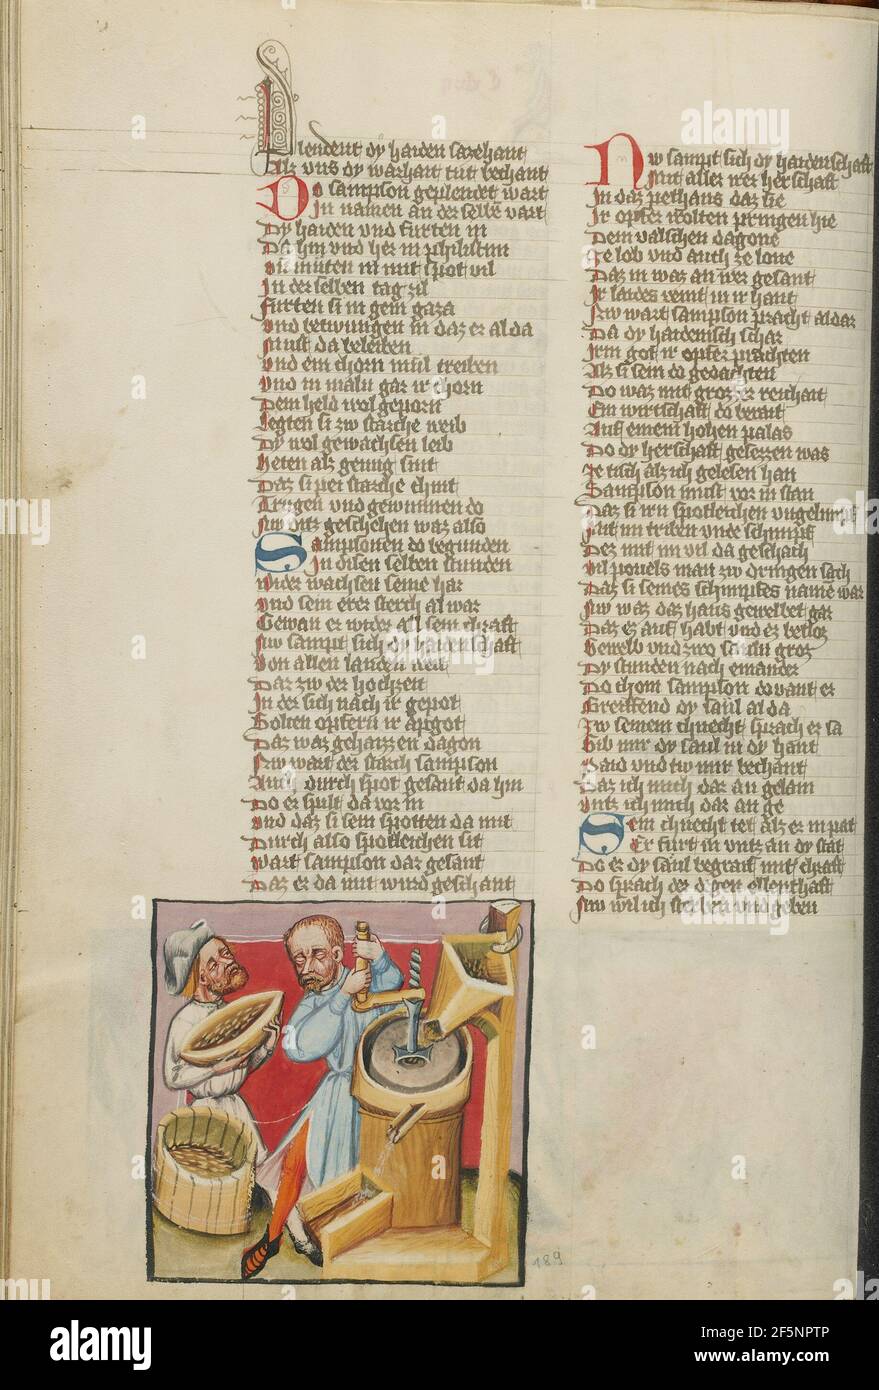 Plendent dy haiden sazehant
Als vns dy warhait tut bechant
Do sampson geplendet wart
In namen an der selbe vart
Dy haiden vnd furten in
Da hin vnd her in philistim
vil mit spot vil
In der selben tag zil
Furten si in gein gaza
vnd betwungen in daz er al da
Must da beleiben
vnd ein chorn mül treiben
vnd in maln gar ir chorn
Dem held wol geporn
Legten si zw starche weib
Dy wol gewachsen leib
Heten als genug sint
Daz si pei starche chint
Trugen vnd gewunnen do
Nw ditz geschehen waz also
Sampsonen do begunden
In disen selben stunden
wider wachsen seine har
vnd sein erer sterch al war
Gewan er wider all sein chraft
Nw sampt sich dy haidenschaft
von allen landen weit
Dar zw der hochzeit
In der sich nach ir gepot
Wolten opfern ir apgot
Daz waz gehaizzen dagon
Nw wart der starch sampson
Auch durch spot gesant da hin
Do er spilt da vor in
vnd daz si sein spotten da mit
Durch also spotleichen sit
wart sampson dar gesant
Daz er da mit wurd geschant
Nw sampt sich dy haidenschaft
Mit aller irer herschaft
In daz pethaus daz sie
Ir opfer wolten pringen hie
Dem valschen dagone
Ze lob vnd auch ze lone
Daz in waz an wer gesant
Ir laides veint in ir hant
Nw wart sampson pracht aldar
Da dy haidenisch schar
Irm got ir opfer prachten
Als si sein do gedachten
Do waz mit groz er reichait
Ein wirtschaft do berait
Auf einem hohen palas
Do dy herschaft gesezzen was
Ze tisch als ich gelesen han
Sampson must vor in stan
Daz si irn spotleichen vngelimpf
Mit im triben vnde schimpf
Des mit im vil da geschach
vil pouels man zw dringen sach
Daz si seines schimpfes name war
Nw waz daz haus gewelbet gar
Daz ez auf habt vnd ez besloz
Gewelb vnd zwo sauln groz
Dy stunden nach einander
Do chom sampson do vant er
Greiffend dy saul al da
Zw seinem chnecht sprach er sa
Gib mir dy saul in dy hant
Baid vnd tw mir bechant
Daz ich mich dar an gelain
vntz ich mich dar an ge
Sein chnecht tet als er in pat
Er furt in vntz an dy stat
Do er dy saul begraif mit chraft
Do sprach der degen ellenthaft
Nw wil ich sterben vnd geben
189
alamy
Image ID: 2F5NPTP
www.alamy.com